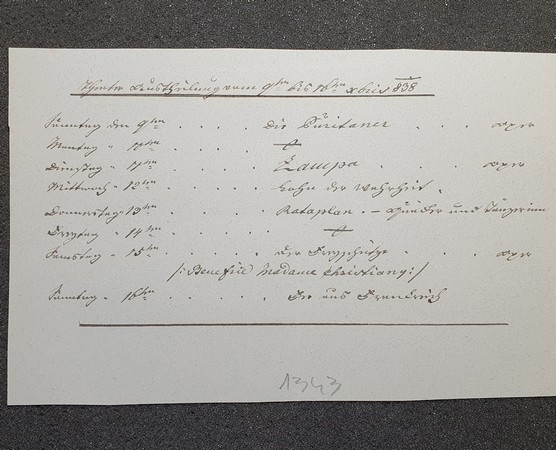 Theater Austheilung vom 9ten bis 16ten xbris 838
Sonntag den 9ten . . . . Die Puritaner . . . oper
Montag " 10ten . . . .
Dienstag " 11ten . . . . Zampa . . . oper
Mittwoch " 12ten . . . . . Lohn der Wahrheit .
Donnerstag " 13ten . . . . . Rataplan . – und Tänzerinn
Freytag " 14ten . . . .
Samstag " 15ten . . . . . der Freyschütze . . . oper
/: Benefice Madame Christiany :/
Sonntag " 16ten . . . . .
1343